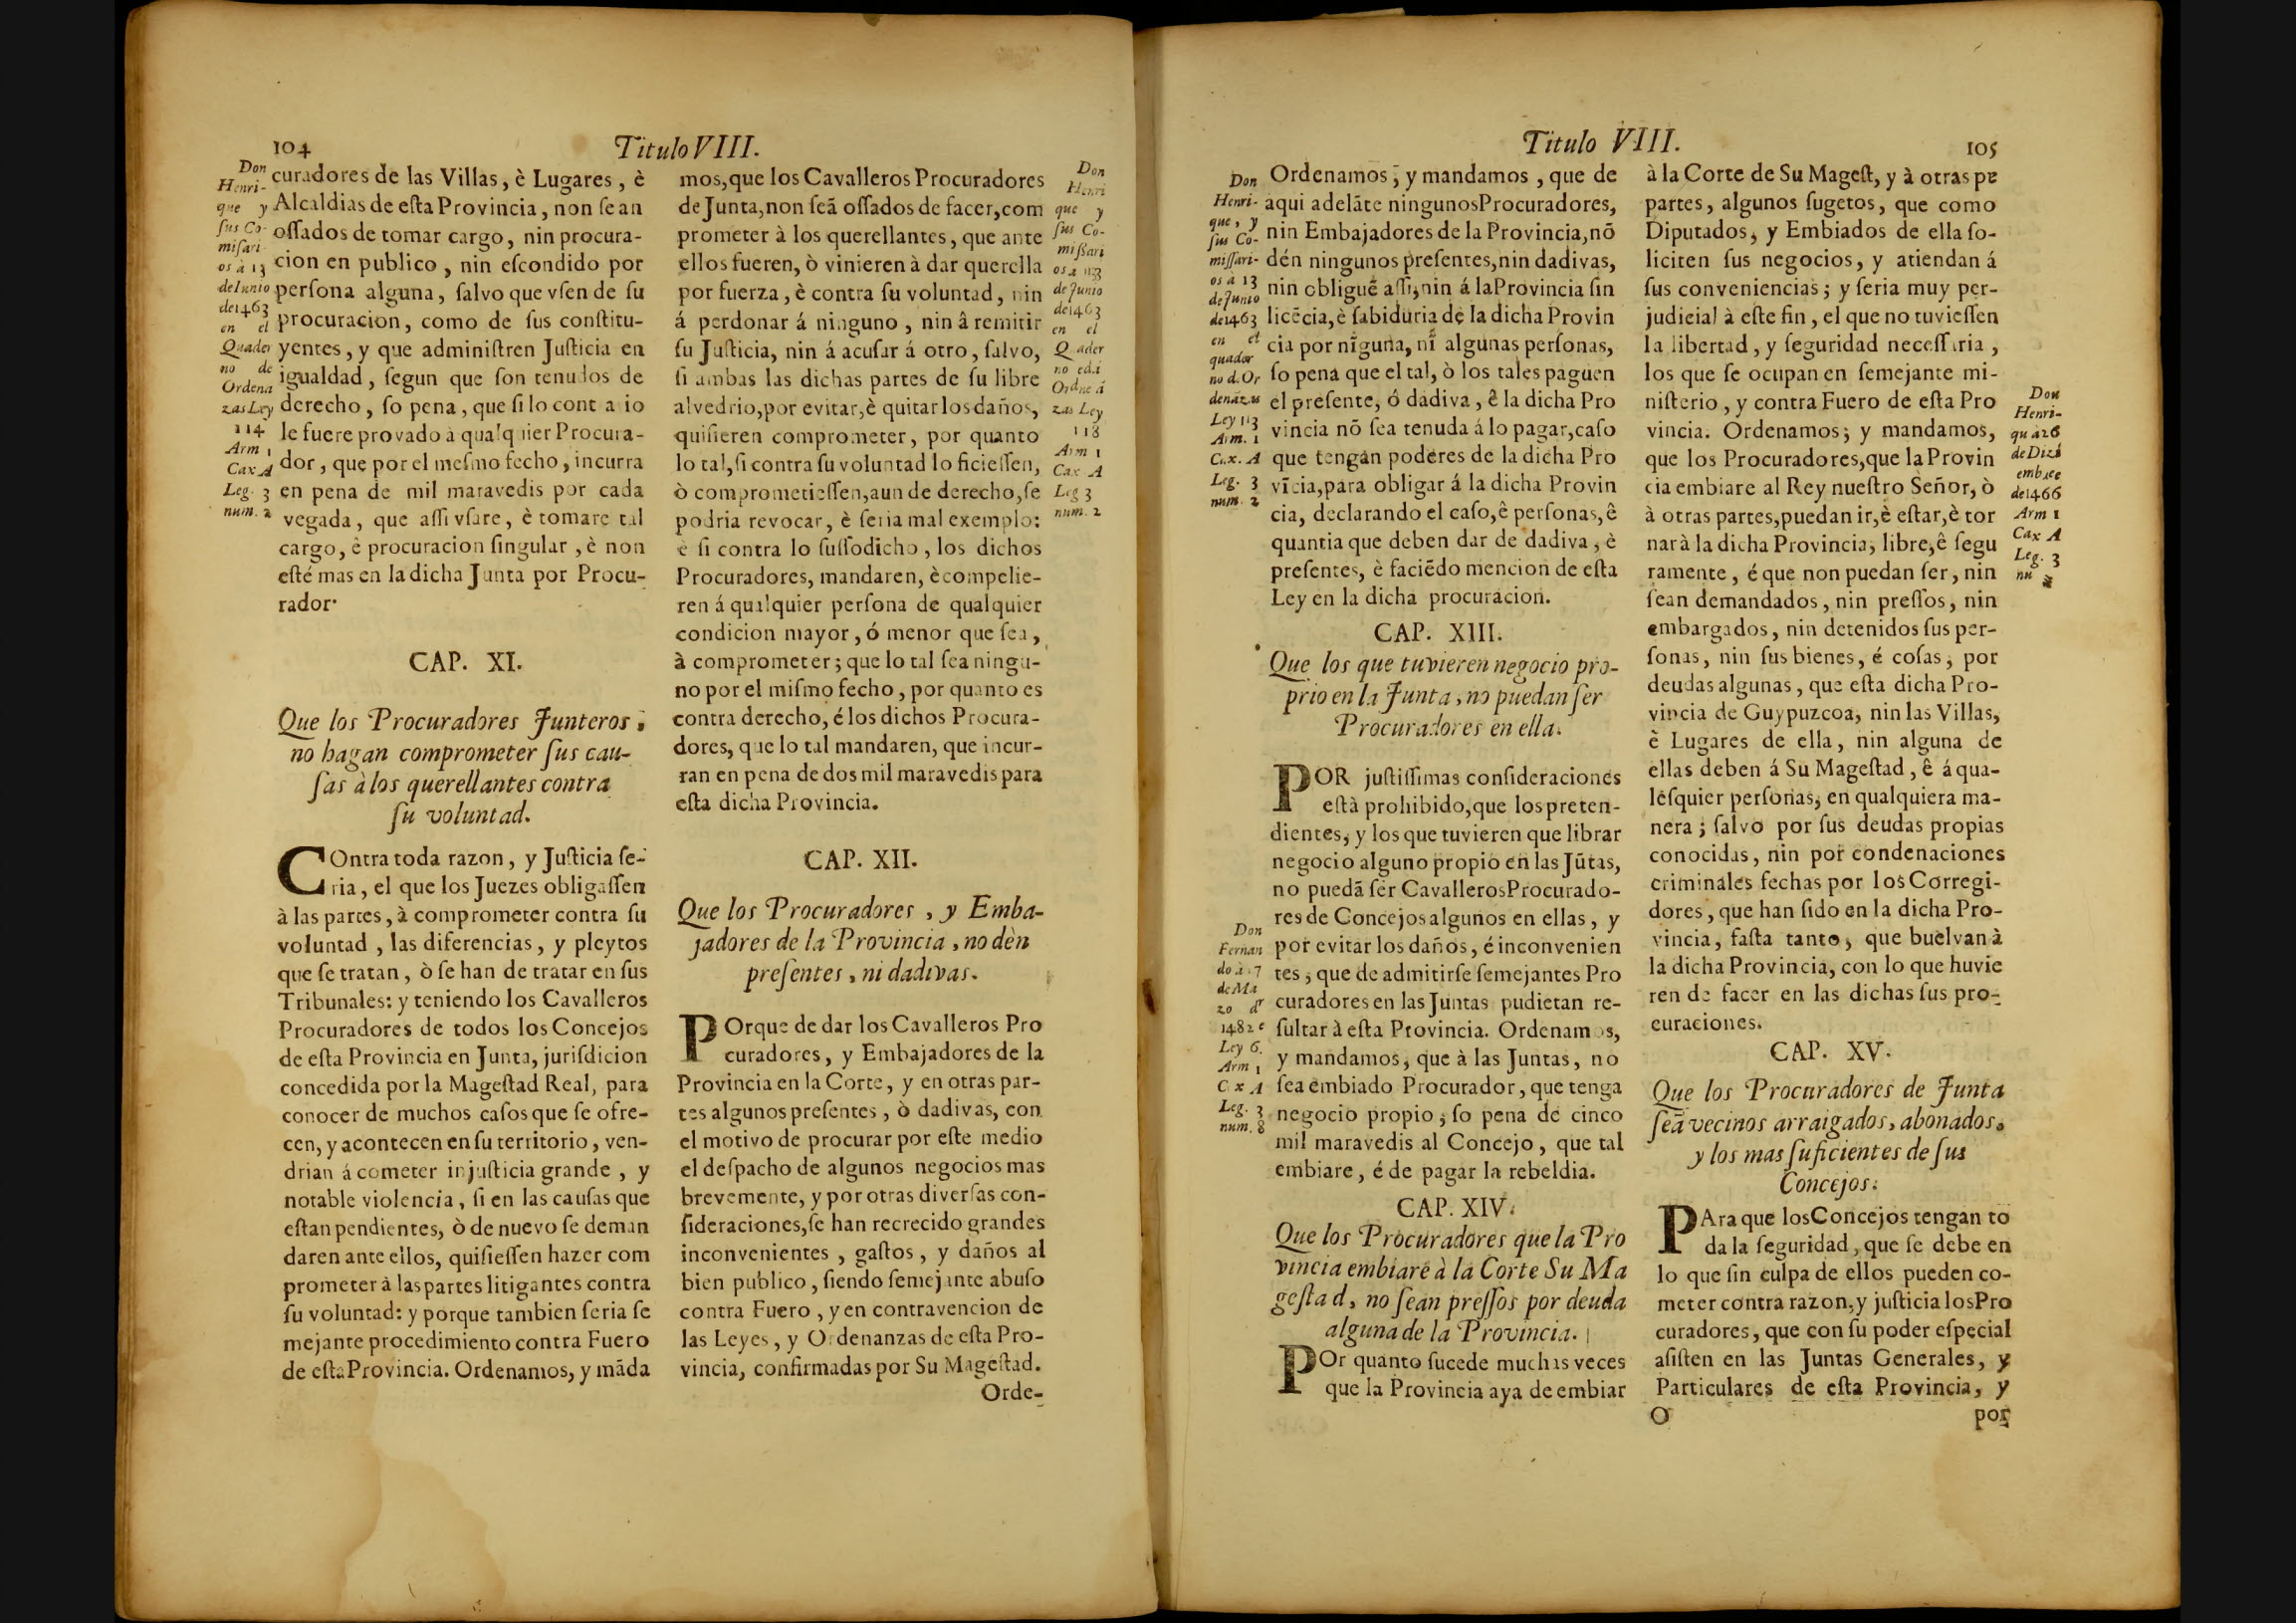 104
Titulo VIII.
Don
Henri-
que y
ſus Co-
miſari-
os à 13
de Iunio
de 1463
en el
Quader
no de
Ordena
zas Ley
114
Arm 1
Cax A
Leg. 3
num. 2
curadores de las Villas, è Lugares, è
Alcaldias de eſta Provincia, non ſean
oſſados de tomar cargo, nin procura-
cion en publico, nin eſcondido por
perſona alguna, ſalvo que vſen de ſu
procuracion, como de ſus conſtitu-
yentes, y que adminiſtren Juſticia en
igualdad, ſegun que ſon tenudos de
derecho, ſo pena, que ſi lo cont a io
le fuere provado à qualquier Procura-
dor, que por el meſmo fecho, incurra
en pena de mil maravedis por cada
vegada, que aſſi vſare, è tomare tal
cargo, è procuracion ſingular, è non
eſté mas en la dicha Junta por Procu-
rador·
CAP. XI.
Que los Procuradores Junteros,
no hagan comprometer ſus cau-
ſas à los querellantes contra
ſu voluntad.
COntra toda razon, y Juſticia ſe-
ria, el que los Juezes obligaſſen
à las partes, à comprometer contra ſu
voluntad, las diferencias, y pleytos
que ſe tratan, ò ſe han de tratar en ſus
Tribunales: y teniendo los Cavalleros
Procuradores de todos los Concejos
de eſta Provincia en Junta, juriſdicion
concedida por la Mageſtad Real, para
conocer de muchos caſos que ſe ofre-
cen, y acontecen en ſu territorio, ven-
drian á cometer injuſticia grande, y
notable violencia, ſi en las cauſas que
eſtan pendientes, ò de nuevo ſe deman
daren ante ellos, quiſieſſen hazer com
prometer à las partes litigantes contra
ſu voluntad: y porque tambien ſeria ſe
mejante procedimiento contra Fuero
de eſta Provincia. Ordenamos, y mãda
mos, que los Cavalleros Procuradores
de Junta, non ſeã oſſados de facer, com
prometer à los querellantes, que ante
ellos fueren, ò vinieren à dar querella
por fuerza, è contra ſu voluntad, nin
á perdonar á ninguno, nin â remitir
ſu Juſticia, nin á acuſar á otro, ſalvo,
ſi ambas las dichas partes de ſu libre
alvedrio, por evitar, è quitar los daños,
quiſieren comprometer, por quanto
lo tal, ſi contra ſu voluntad lo ficieſſen,
ò comprometieſſen, aun de derecho, ſe
podria revocar, è ſeria mal exemplo:
è ſi contra lo ſuſſodicho, los dichos
Procuradores, mandaren, è compelie-
ren á qualquier perſona de qualquier
condicion mayor, ó menor que ſea,
à comprometer; que lo tal ſea ningu-
no por el miſmo fecho, por quanto es
contra derecho, é los dichos Procura-
dores, que lo tal mandaren, que incur-
ran en pena de dos mil maravedis para
eſta dicha Provincia.
Don
Henri
que y
ſus Co-
miſſari
os à
de Junio
de 1463
en el
Q ader
zas Ley
118
Arm 1
Cax A
Leg 3
num. 2
CAP. XII.
Que los Procuradores, y Emba-
jadores de la Provincia, no dèn
preſentes, ni dadivas.
POrque de dar los Cavalleros Pro
curadores, y Embajadores de la
Provincia en la Corte, y en otras par-
tes algunos preſentes, ò dadivas, con
el motivo de procurar por eſte medio
el deſpacho de algunos negocios mas
brevemente, y por otras diverſas con-
ſideraciones, ſe han recrecido grandes
inconvenientes, gaſtos, y daños al
bien publico, ſiendo ſemejante abuſo
contra Fuero, y en contravencion de
las Leyes, y Ordenanzas de eſta Pro-
vincia, confirmadas por Su Mageſtad.
Orde-
Titulo VIII.
105
Don
Henri-
que, y
ſus Co-
miſſari-
os à 13
de Junio
de 1463
en el
quader
no d. Or
denãzas
Ley 113
Arm. 1
Cax. A
Leg. 3
num. 2
Ordenamos, y mandamos, que de
aqui adelãte ningunos Procuradores,
nin Embajadores de la Provincia, nõ
dén ningunos preſentes, nin dadivas,
nin obliguẽ aſſi, nin á la Provincia ſin
licẽcia, è ſabiduria de la dicha Provin
cia por nĩguna, nĩ algunas perſonas,
ſo pena que el tal, ò los tales paguen
el preſente, ó dadiva, ê la dicha Pro
vincia nõ ſea tenuda á lo pagar, caſo
que tengan poderes de la dicha Pro
vĩcia, para obligar á la dicha Provin
cia, declarando el caſo, ê perſonas, ê
quantia que deben dar de dadiva, è
preſentes, è faciẽdo mencion de eſta
Ley en la dicha procuracion.
CAP. XIII.
Que los que tuvieren negocio pro-
prio en la Junta, no puedan ſer
Procuradores en ella.
POR juſtiſſimas conſideraciones
eſtà prohibido, que los preten-
dientes, y los que tuvieren que librar
negocio alguno propio en las Jũtas,
no puedã ſer Cavalleros Procurado-
res de Concejos algunos en ellas, y
por evitar los daños, é inconvenien
tes, que de admitirſe ſemejantes Pro
curadores en las Juntas pudieran re-
ſultar à eſta Provincia. Ordenamos,
y mandamos, que à las Juntas, no
ſea embiado Procurador, que tenga
negocio propio, ſo pena de cinco
mil maravedis al Concejo, que tal
embiare, é de pagar la rebeldia.
Don
Fernan
do à 17
de Ma
zo d
1482
Ley 6.
Arm 1
C x A
Leg. 3
num. 8
CAP. XIV.
Que los Procuradores que la Pro
vincia embiare à la Corte Su Ma
geſtad, no ſean preſſos por deuda
alguna de la Provincia.
POr quanto ſucede muchas veces
que la Provincia aya de embiar
à la Corte de Su Mageſt, y à otras pe
partes, algunos ſugetos, que como
Diputados, y Embiados de ella ſo-
liciten ſus negocios, y atiendan á
ſus conveniencias; y ſeria muy per-
judicial à eſte fin, el que no tuvieſſen
la libertad, y ſeguridad neceſſaria,
los que ſe ocupan en ſemejante mi-
niſterio, y contra Fuero de eſta Pro
vincia. Ordenamos; y mandamos,
que los Procuradores, que la Provin
cia embiare al Rey nueſtro Señor, ò
à otras partes, puedan ir, è eſtar, è tor
nar à la dicha Provincia, libre, ê ſegu
ramente, é que non puedan ſer, nin
ſean demandados, nin preſſos, nin
embargados, nin detenidos ſus per-
ſonas, nin ſus bienes, é coſas, por
deudas algunas, que eſta dicha Pro-
vincia de Guypuzcoa, nin las Villas,
è Lugares de ella, nin alguna de
ellas deben á Su Mageſtad, ê á qua-
leſquier perſonas, en qualquiera ma-
nera; ſalvo por ſus deudas propias
conocidas, nin por condenaciones
criminales fechas por los Corregi-
dores, que han ſido en la dicha Pro-
vincia, faſta tanto, que buelvan à
la dicha Provincia, con lo que huvie
ren de facer en las dichas ſus pro-
curaciones.
Don
Henri-
qu à 26
de Dizi
embree
de 1466
Arm 1
Cax A
Leg. 3
nu
CAP. XV.
Que los Procuradores de Junta
ſeã vecinos arraigados, abonados,
y los mas ſuficientes de ſus
Concejos.
PAra que los Concejos tengan to
da la ſeguridad, que ſe debe en
lo que ſin culpa de ellos pueden co-
meter contra razon, y juſticia los Pro
curadores, que con ſu poder eſpecial
aſiſten en las Juntas Generales, y
Particulares de eſta Provincia, y
O
por